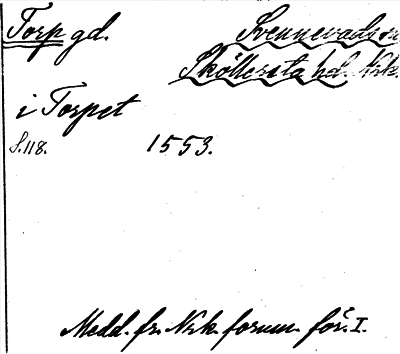 Torp gd.
Svennevads sn
Sköllersta hd. Nrk.
i Torpet
S. 118.
1553.
Medd. fr. Nrk. fornm. för. I.